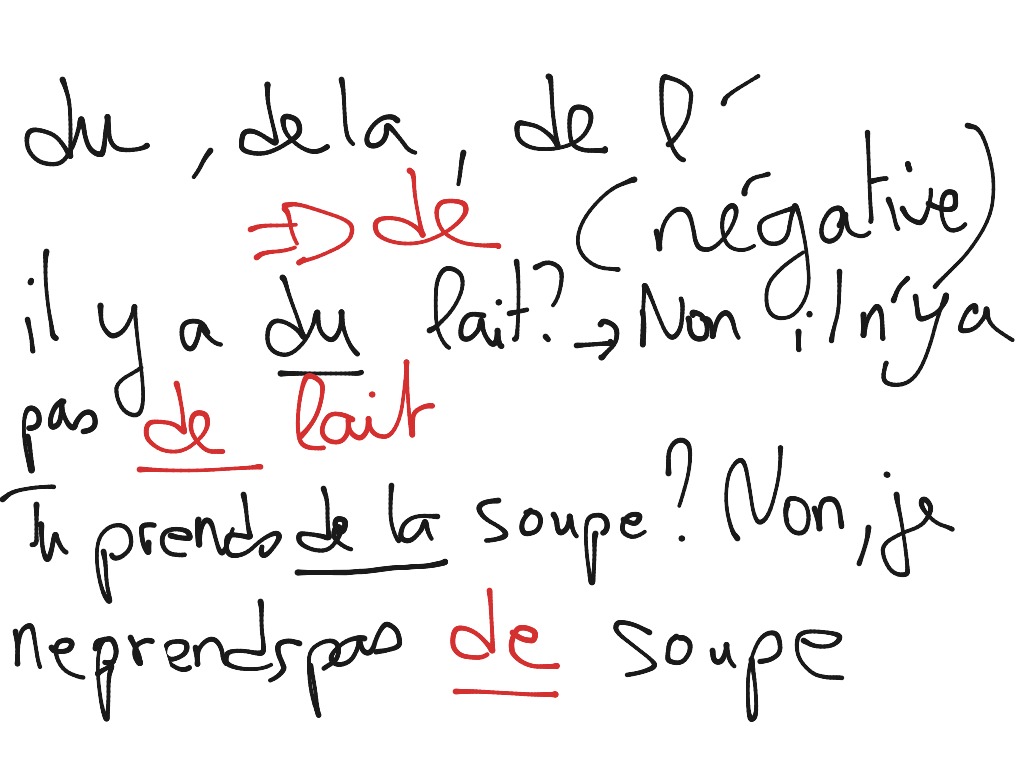 du, de la, de l'
⇒ de (négative)
il y a du lait? → Non il n'y a
pas de lait
Tu prends de la soupe? Non, je
ne prends pas de soupe